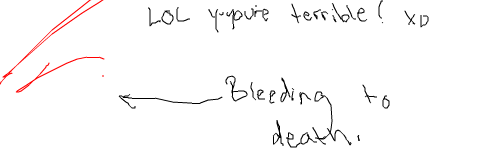 LOL y-you're terrible! XD
Bleeding to
death.